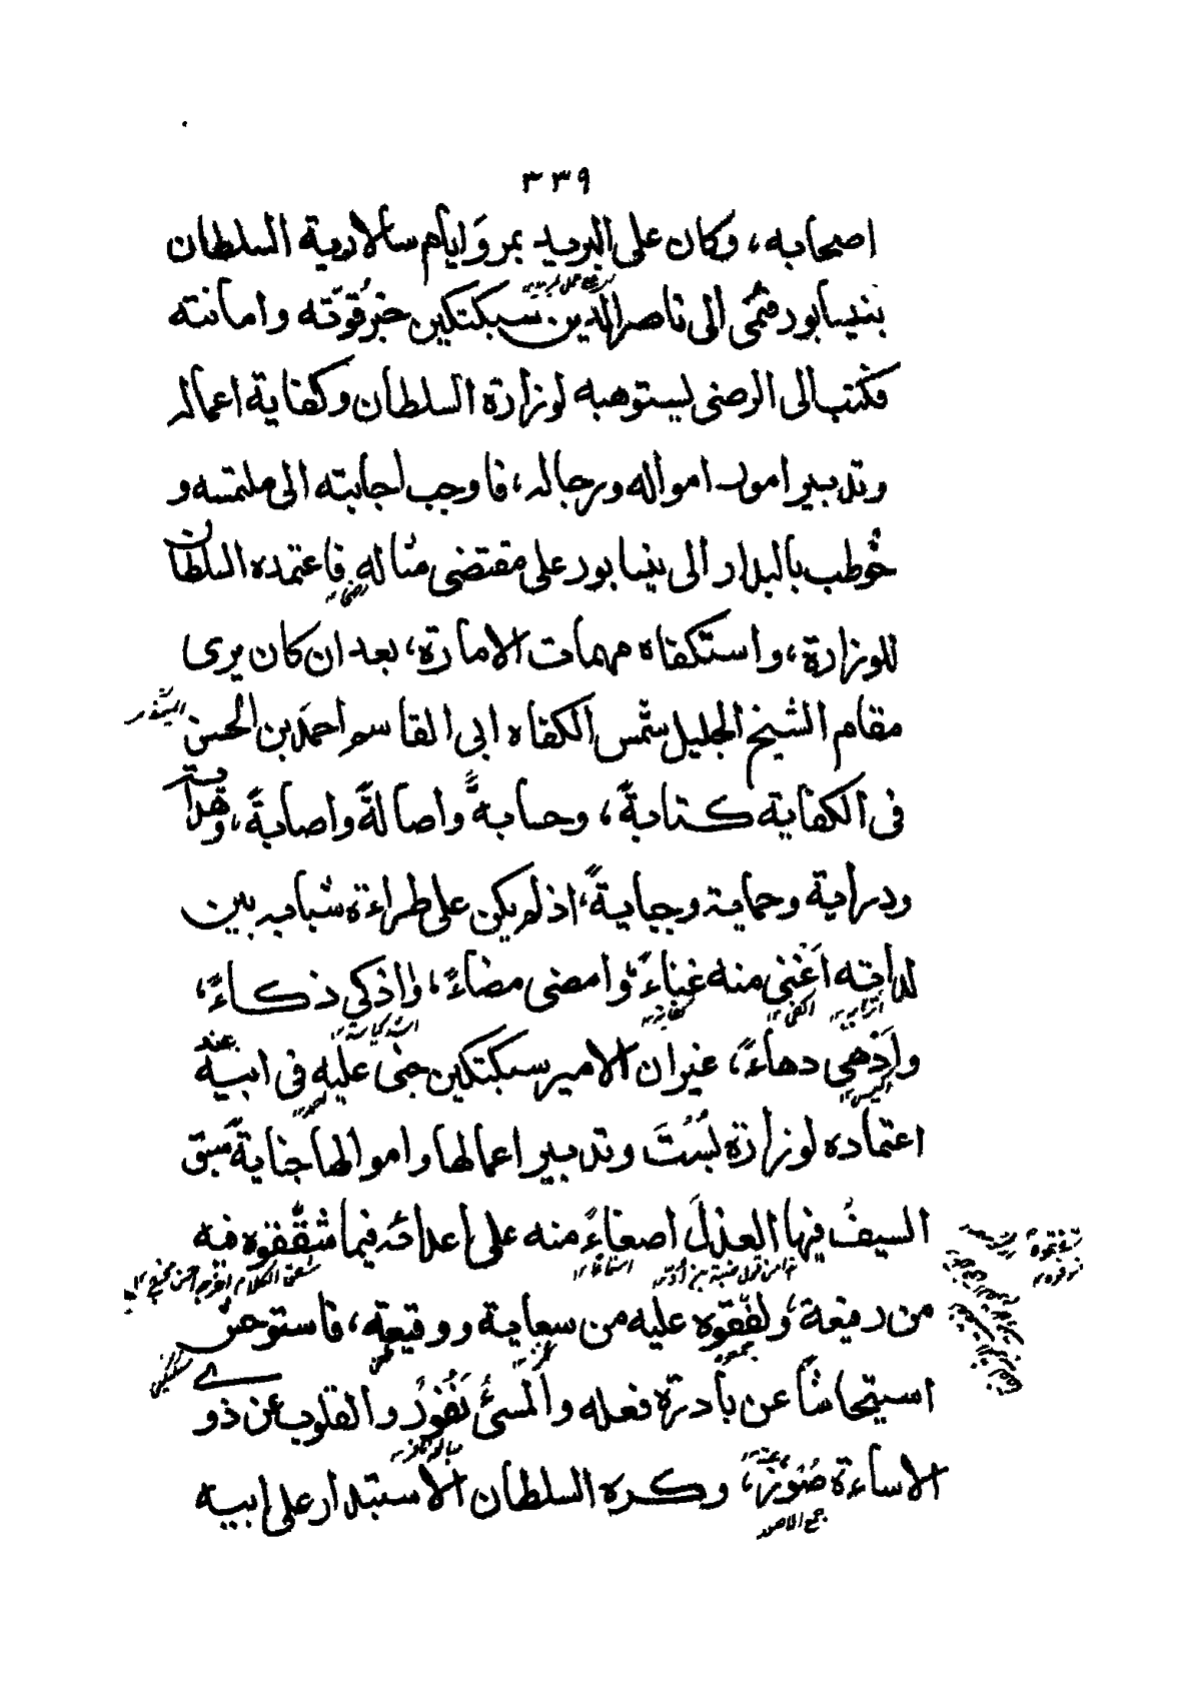 ٣٣٩
اصحابه، وكان على البريد بمرو ايام سالارية السلطان
بنيسابور فنمى الى ناصرالدين سبكتكين خبرقوّته وامانته
فكتب الى الرضى ليستوهبه لوزارة السلطان وكفاية اعماله
وتدبير امور امواله ورجاله، فاوجب اجابته الى ملتمسه و
خُوطب بالبدار الى نيسابور على مقتضى مثاله فاعتمده السلطان
للوزارة، واستكفاه مهمات الامارة، بعد ان كان يرى
مقام الشيخ الجليل شمس الكفاه ابى القاسم احمد بن الحسن
فى الكفاية كتابةً، وحسابةً واصالةً واصابةً، وهداية
ودراية وحماية وجبايةً، اذ لم يكن على طراءة شبابه بين
لداته اَغنى منه غناءً، وامضى مضاءً، واذكى ذكاءً،
وادهى دهاءً، غيران الامير سبكتكين جنى عليه فى ابيه عند
اعتماده لوزارة بُسْتَ وتدبير اعمالها واموالها جنايةً سبق
السيفُ فيها العذلَ اصغاءً منه على اعدائه فيما شقّقوه فيه
من رفيعة، ولفّقوه عليه من سعاية ووقيعة، فاستوحش
استيحاشًا عن بادرة فعله والمسئُ نَفُورٌ والقلوب عن ذوى
الاساءة صُورٌ، وكره السلطان الاستبدار على ابيه